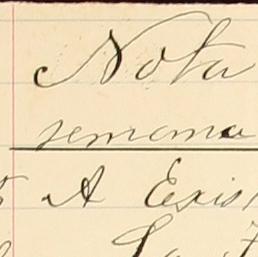 Nota
semana
A Exis